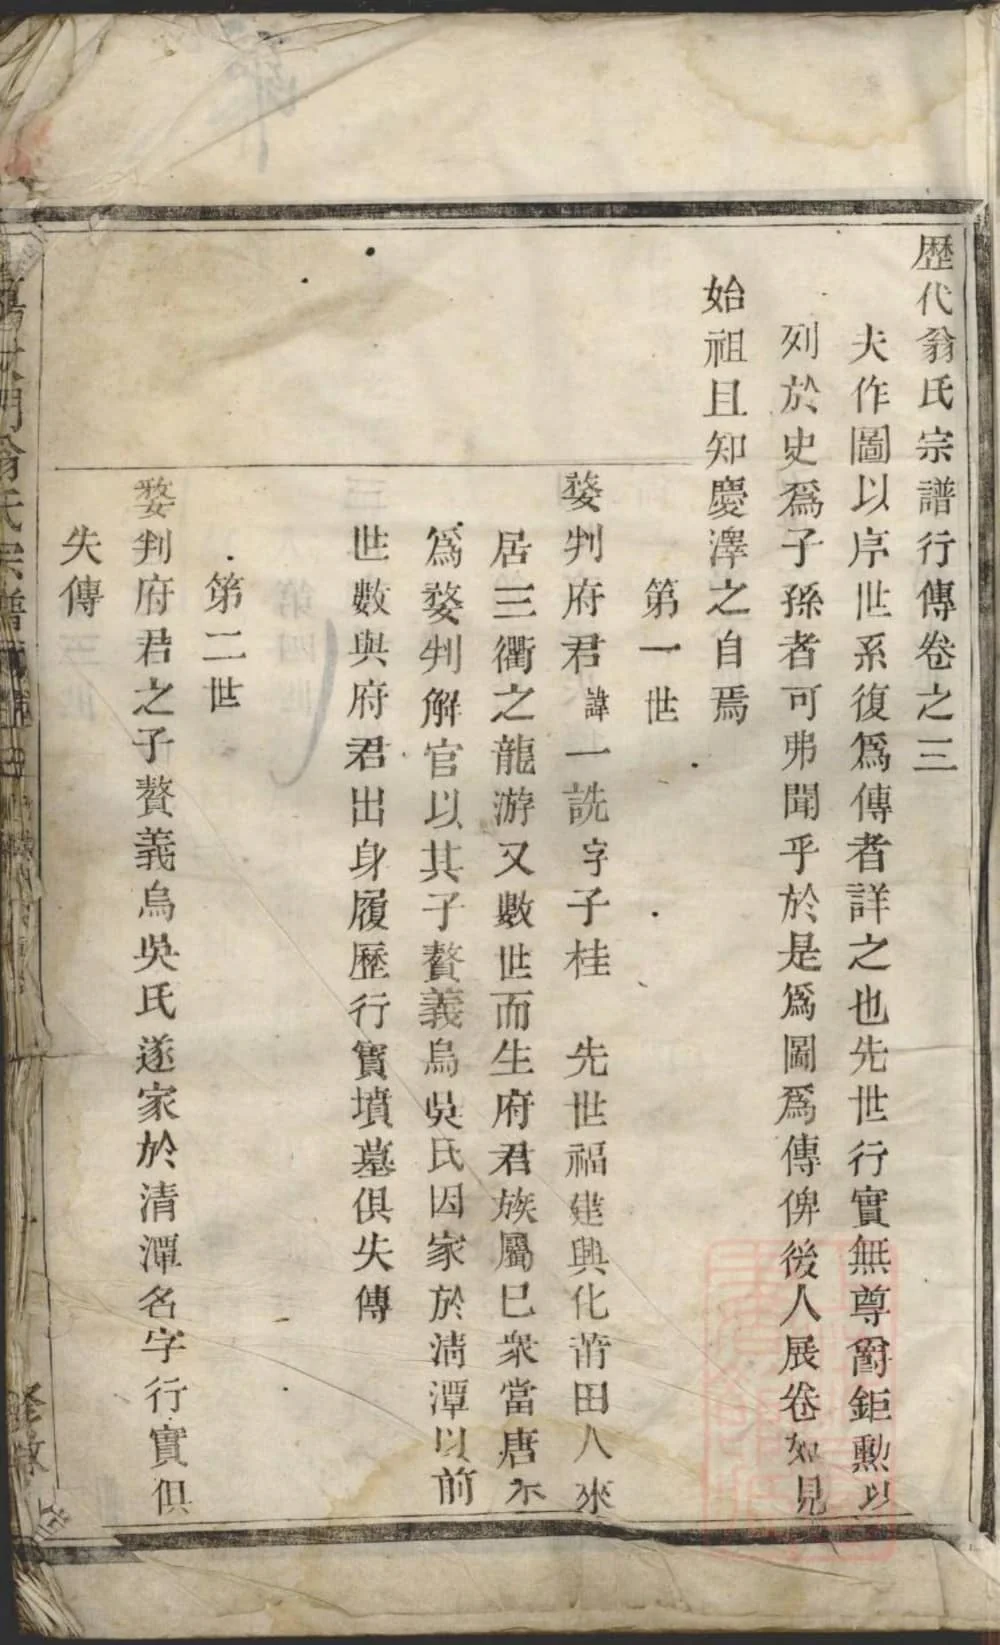 歷代翁氏宗譜行傳卷之三
夫作圖以序世系復爲傳者詳之也先世行實無尊爵鉅勲以
列於史爲子孫者可弗聞乎於是爲圖爲傳俾後人展卷如見
始祖且知慶澤之自焉
第一世
婺判府君諱一詵字子桂 先世福建興化莆田人來
居三衢之龍游又數世而生府君族屬巳衆當唐末
爲婺判解官以其子贅義烏吳氏因家於清潭以前
世數與府君出身履歷行實墳墓俱失傳
第二世
婺判府君之子贅義烏吳氏遂家於清潭名字行實俱
失傳
門翁氏宗譜